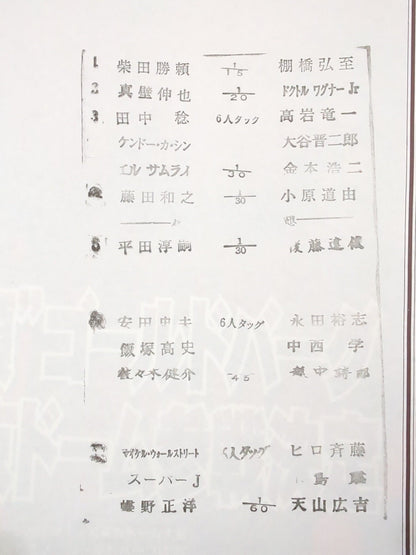 1 柴田勝頼 1/15 棚橋弘至
2 真壁伸也 1/20 ドクトルワグナーJr
3 田中稔 6人タッグ 高岩竜一
ケンドー・カ・シン 大谷晋二郎
エル サムライ 1/30 金本浩二
藤田和之 1/30 小原道由
5 平田淳嗣 1/30 後藤達俊
安田忠夫 6人タッグ 永田裕志
飯塚高史 中西学
佐々木健介 45 越中詩郎
マイケル・ウォールストリート 6人タッグ ヒロ斉藤
スーパーJ
蝶野正洋 1/60 天山広吉